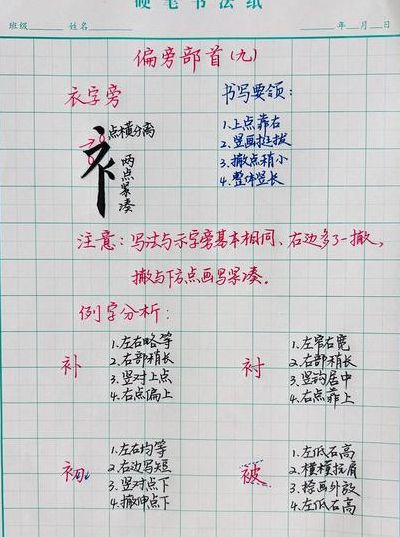 硬笔书法纸
班级 姓名 年 月 日
偏旁部首(九)
衣字旁
书写要领:
点横分离
两点紧凑
衤
1.上点靠右
2.竖画挺拔
3.撇点稍小
4.整体竖长
注意:写法与示字旁基本相同、右边多了一撇,
撇与下方点画写紧凑。
例字分析:
补
1.左右略等
2.右部稍长
3.竖对上点
4.右点偏上
衬
1.左窄右宽
2.右部稍长
3.竖钩居中
4.右点靠上
初
1.左右均等
2.右边写短
3.竖对点下
4.撇伸点下
被
1.左低右高
2.横横抗肩
3.捺画外放
4.左低右高